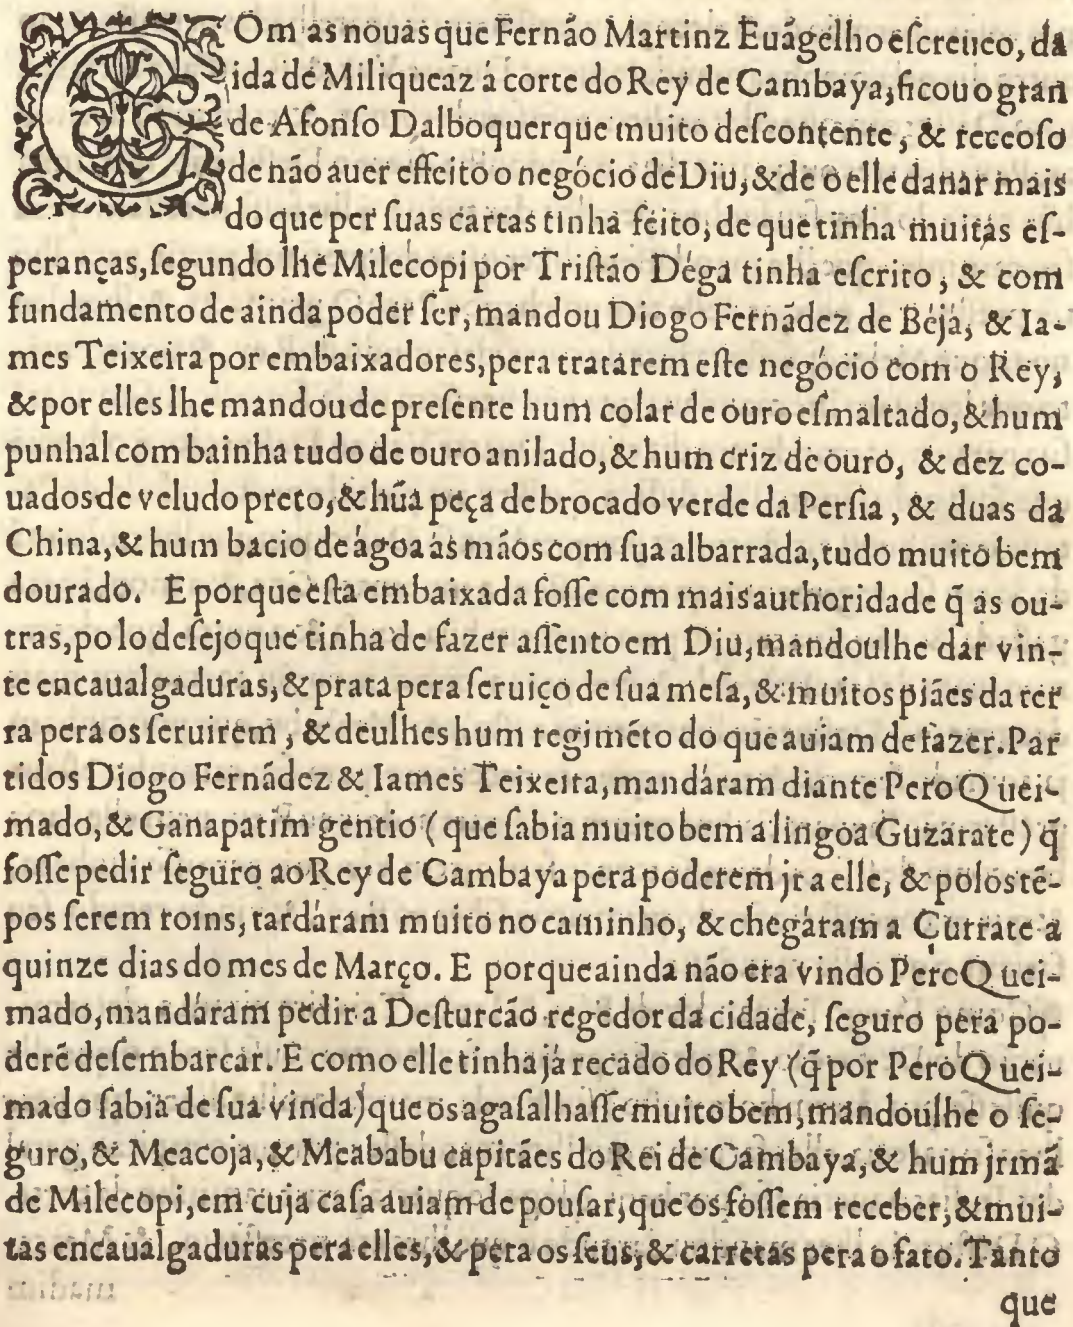 COm as nouas que Fernão Martinz Euãgelho escreueo, da
ida de Miliqueaz á corte do Rey de Cambaya, ficou o gran
de Afonſo Dalboquerque muito deſcontente, & receoſo
de não auer effeito o negócio de Diu, & de o elle danar mais
do que per ſuas cartas tinha feito, de que tinha muitas eſ-
peranças, ſegundo lhe Milecopi por Triſtão Dégá tinha eſcrito, & com
fundamento de ainda poder ſer, mandou Diogo Fernãdez de Béja, & Ia-
mes Teixeira por embaixadores, pera tratarem eſte negócio com o Rey,
& por elles lhe mandou de preſente hum colar de ouro eſmaltado, & hum
punhal com bainha tudo de ouro anilado, & hum criz de ouro, & dez co-
uados de veludo preto, & hũa peça de brocado verde da Perſia, & duas da
China, & hum bacio de ágoa ás mãos com ſua albarrada, tudo muito bem
dourado. E porque eſta embaixada foſſe com mais authoridade q̃ as ou-
tras, polo deſejo que tinha de fazer aſſento em Diu, mandoulhe dar vin-
te encaualgaduras, & prata pera ſeruiço de ſua meſa, & muitos piães da ter
ra pera os ſeruirem, & deulhes hum regimẽto do que auiam de fazer. Par
tidos Diogo Fernãdez & Iames Teixeira, mandáram diante Pero Quei-
mado, & Ganapatim gentio (que ſabia muito bem a lingoa Guzarate) q̃
foſſe pedir ſeguro ao Rey de Cambaya pera poderem jr a elle, & polos tẽ-
pos ſerem roins, tardáram muito no caminho, & chegáram a Çurrate a
quinze dias do mes de Março. E porque ainda não era vindo Pero Quei-
mado, mandáram pedir a Deſturcão regedor da cidade, ſeguro pera po-
derẽ deſembarcar. E como elle tinha já recado do Rey (q̃ por Pero Quei-
mado ſabia de ſua vinda) que os agaſalhaſſe muito bem, mandoulhe o ſe-
guro, & Meacoja, & Meababu capitães do Rei de Cambaya, & hum jrmã
de Milecopi, em cuja caſa auiam de pouſar, que os foſſem receber, & mui-
tas encaualgaduras pera elles, & pera os ſeus, & carretas pera o fato. Tanto
que